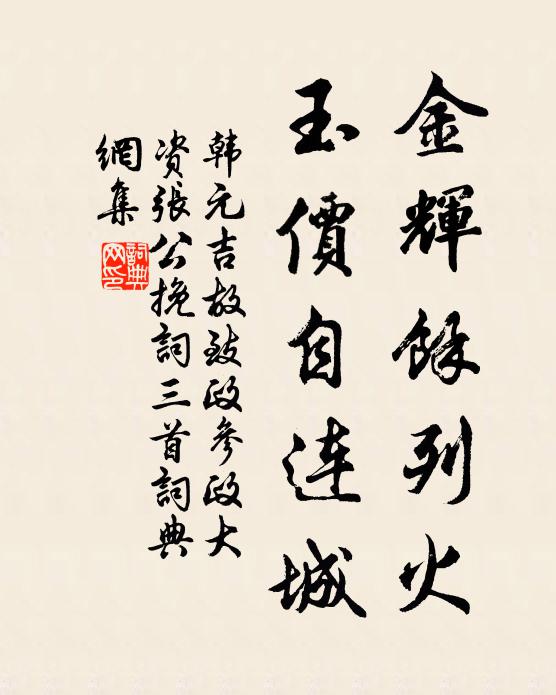 金輝餘列火
玉價自連城
韩元吉故致政参政大
资張公挽詞三首詞典
網集
詞典
网印